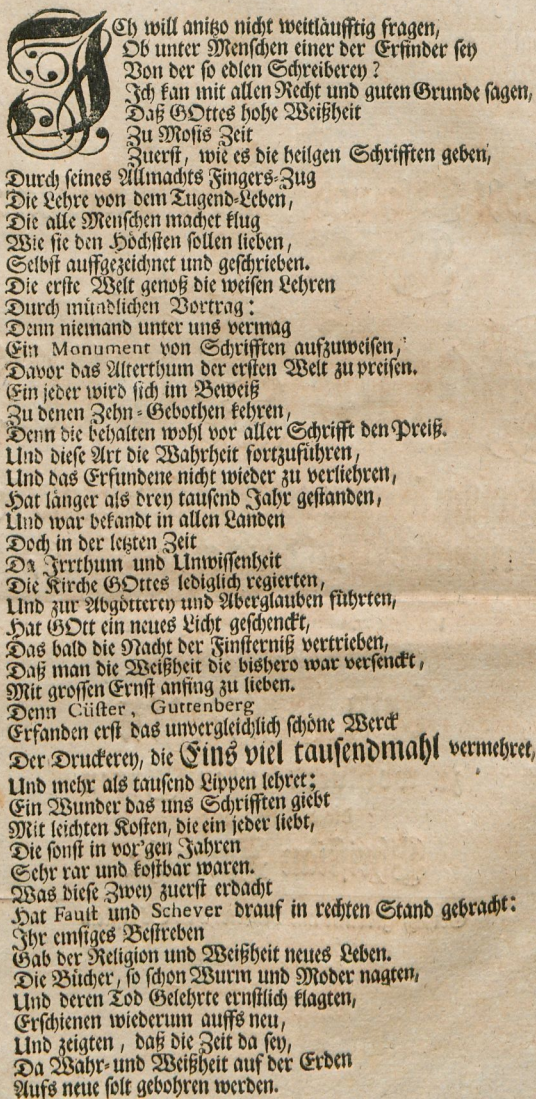 ICh will anitzo nicht weitläufftig fragen,
Ob unter Menschen einer der Erfinder sey
Von der so edlen Schreiberey?
Ich kan mit allen Recht und guten Grunde sagen,
Daß GOttes hohe Weißheit
Zu Mosis Zeit
Zuerst, wie es die heilgen Schrifften geben,
Durch seines Allmachts Fingers-Zug
Die Lehre von dem Tugend-Leben,
Die alle Menschen machet klug
Wie sie den Höchsten sollen lieben,
Selbst auffgezeichnet und geschrieben.
Die erste Welt genoß die weisen Lehren
Durch mündlichen Vortrag:
Denn niemand unter uns vermag
Ein Monument von Schrifften aufzuweisen,
Davor das Alterthum der ersten Welt zu preisen.
Ein jeder wird sich im Beweiß
Zu denen Zehn-Gebothen kehren,
Denn die behalten wohl vor aller Schrifft den Preiß.
Und diese Art die Wahrheit fortzuführen,
Und das Erfundene nicht wieder zu verliehren,
Hat länger als drey tausend Jahr gestanden,
Und war bekandt in allen Landen
Doch in der letzten Zeit
Da Irrthum und Unwissenheit
Die Kirche GOttes lediglich regierten,
Und zur Abgötterey und Aberglauben führten,
Hat GOtt ein neues Licht geschenckt,
Das bald die Nacht der Finsterniß vertrieben,
Daß man die Weißheit die bishero war versenckt,
Mit grossen Ernst anfing zu lieben.
Denn Cüster, Guttenberg
Erfanden erst das unvergleichlich schöne Werck
Der Druckerey, die Eins viel tausendmahl vermehret,
Und mehr als tausend Lippen lehret;
Ein Wunder das uns Schrifften giebt
Mit leichten Kosten, die ein jeder liebt,
Die sonst in vor'gen Jahren
Sehr rar und kostbar waren.
Was diese Zwey zuerst erdacht
Hat Faust und Schever drauf in rechten Stand gebracht:
Ihr emsiges Bestreben
Gab der Religion und Weißheit neues Leben.
Die Bücher, so schon Wurm und Moder nagten,
Und deren Tod Gelehrte ernstlich klagten,
Erschienen wiederum auffs neu,
Und zeigten, daß die Zeit da sey,
Da Wahr- und Weißheit auf der Erden
Aufs neue solt gebohren werden.